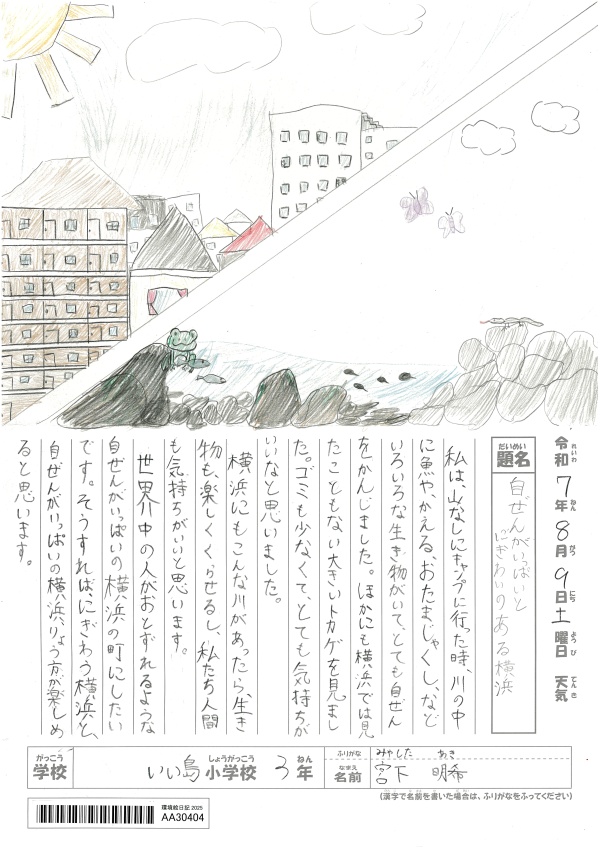 令和7年8月9日土曜日 天気
れいわ ねん がつ にち ようび てんき
だいめい
題名
自ぜんがいっぱいと
にぎわいのある横浜
私は、山なしにキャンプに行った時、川の中
に魚や、かえる、おたまじゃくし、など
いろいろな生き物がいて、とても自ぜん
をかんじました。ほかにも横浜では見
たこともない大きいトカゲを見まし
た。ゴミも少なくて、とても気持ちが
いいなと思いました。
横浜にもこんな川があったら、生き
物も、楽しくくらせるし、私たち人間
も気持ちがいいと思います。
世界中の人がおとずれるような
自ぜんがいっぱいの横浜の町にしたい
です。そうすれば、にぎわう横浜と、
自ぜんがいっぱいの横浜りょう方が楽しめ
ると思います。
がっこう
学校
いい島小学校 3年
しょうがっこう ねん
ふりがな
みやした あき
なまえ
名前
宮下 明希
(漢字で名前を書いた場合は、ふりがなをふってください)
環境絵日記 2025
AA30404